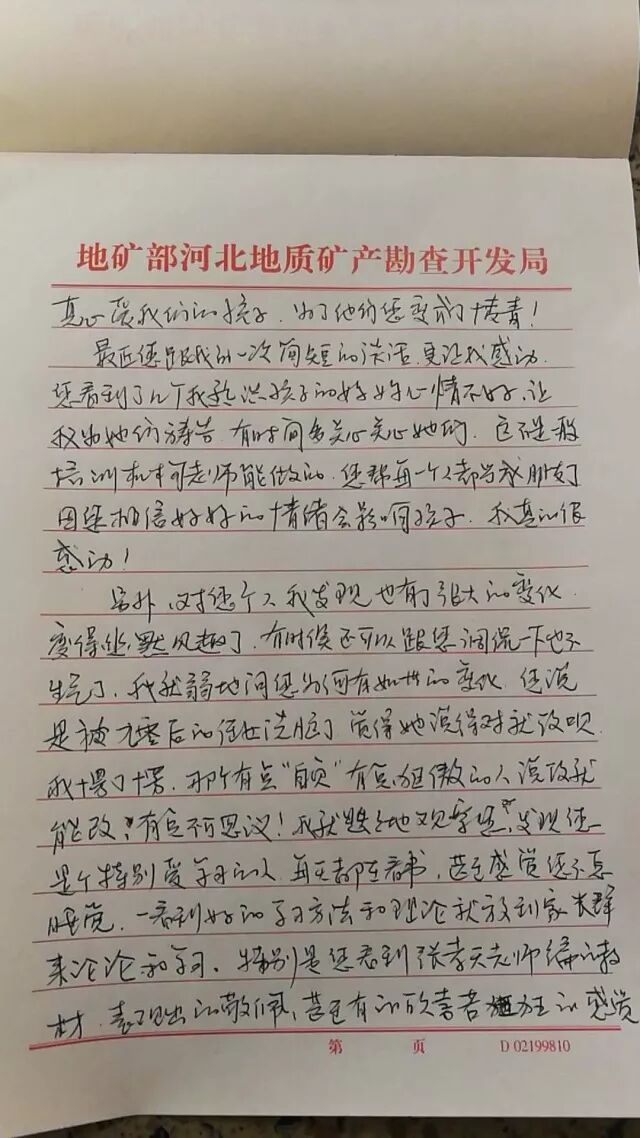 地矿部河北地质矿产勘查开发局
真心爱我们的孩子,为了他们您变前了
最近您跟我的一次简短的谈话,更让我感动.
您看到了几个我教洪孩子的好妈心情不好,让
我为她们祷告,有时间多关心关心她们.这不是教
培训机构老师能做的.您把每一个人都当成朋友们
因您相信好好的情绪会影响孩子,我真的很
感动!
另外,对您个人我发现也有了很大的变化.
变得幽默风趣了,有时候还可以跟您调侃一下也不
生气了,我就弱弱地问您为何有如此的变化,您说
是被九零后的侄女洗脑了觉得她说得对就改呗.
我愣了愣,那个有点“自负”有点狂傲的人说改就
能改,有点不可思议!我就默默地观察您,发现您
是个特别爱学习的人,每天都在看书,甚至感觉您不怎
睡觉,一看到好的学习方法和理论就放到家长群
来讨论和学习.特别是您看到张孝天老师编的教
材.表现出的敬佩,甚至有的欣喜若狂的感觉
第 页 D 02199810